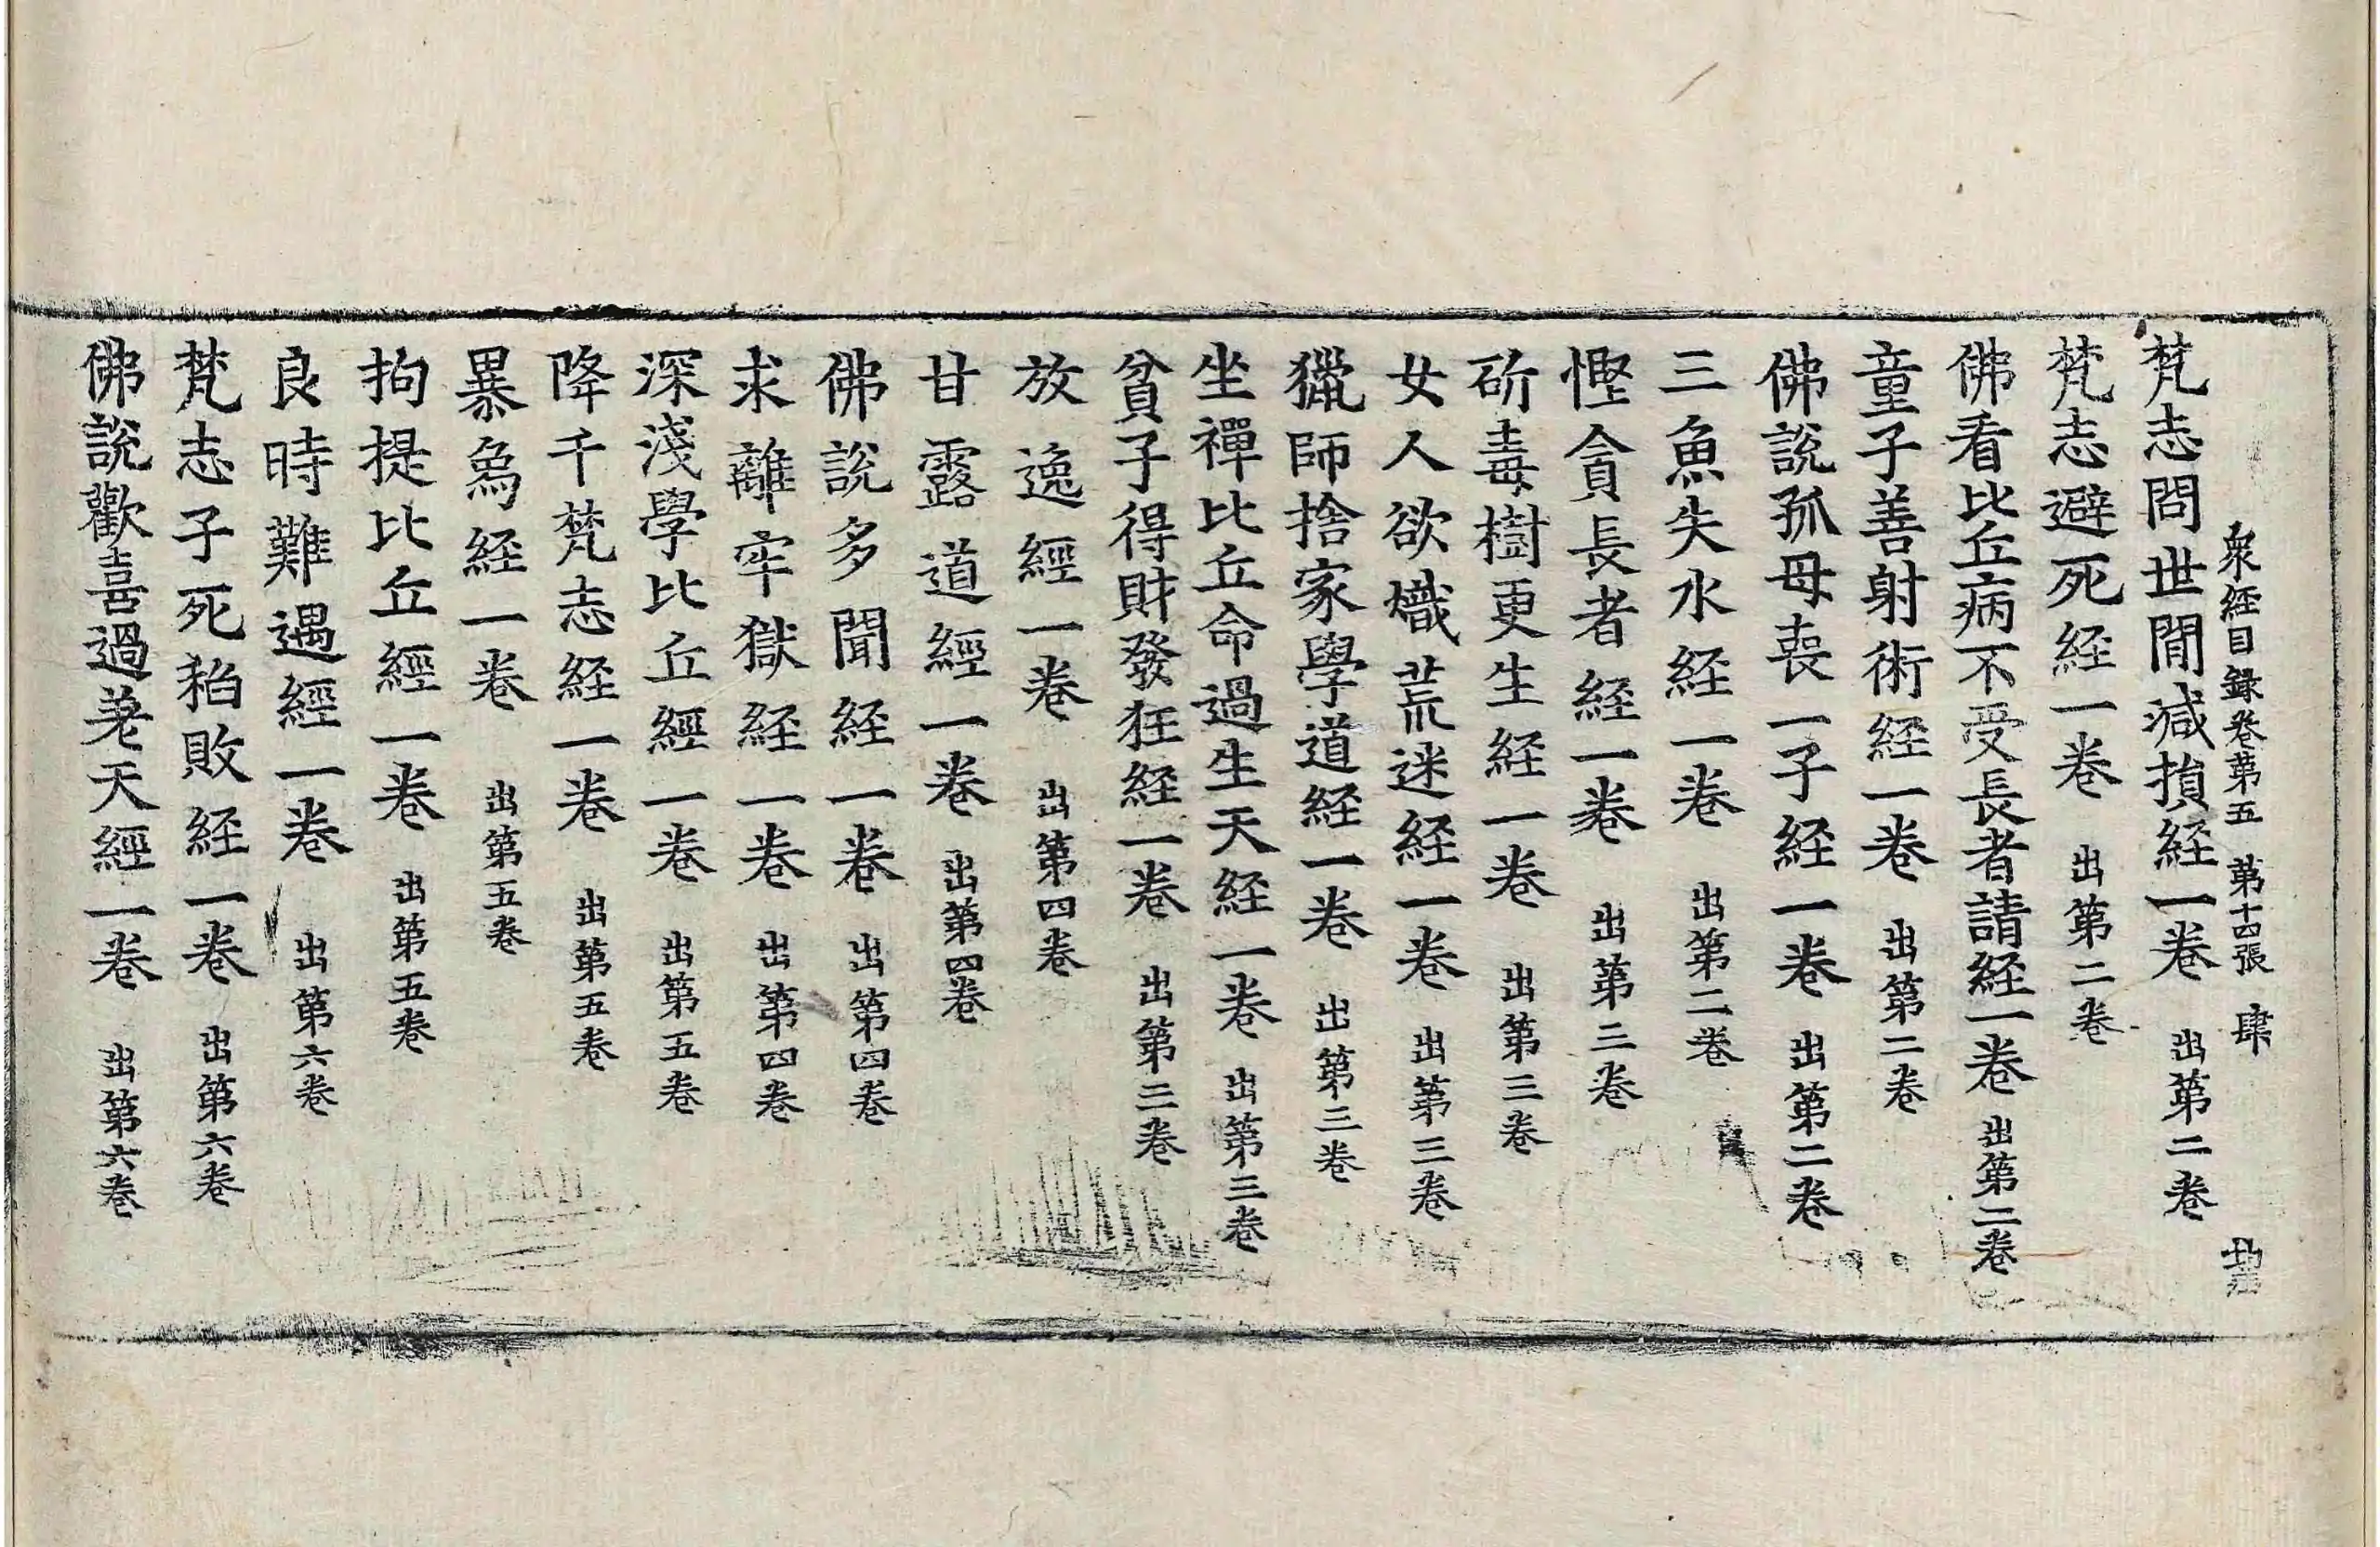 衆経目録巻第五　第十四張　肆
梵志問世間減損経一巻　出第二巻
梵志避死経一巻　出第二巻
佛看比丘病不受長者請経一巻　出第二巻
童子善射術経一巻　出第二巻
佛說孤母喪一子経一巻　出第二巻
三魚失水経一巻　出第二巻
慳貪長者経一巻　出第三巻
斫毒樹更生経一巻　出第三巻
女人欲熾荒迷経一巻　出第三巻
獵師捨家學道経一巻　出第三巻
坐禪比丘命過生天経一巻　出第三巻
貧子得財發狂経一巻　出第三巻
放逸經一巻　出第四巻
甘露道經一巻　出第四巻
佛說多聞経一巻　出第四巻
求離牢獄経一巻　出第四巻
深淺學比丘經一巻　出第五巻
降千梵志経一巻　出第五巻
暴象経一巻　出第五巻
拘提比丘經一巻　出第五巻
良時難遇經一巻　出第六巻
梵志子死稻敗経一巻　出第六巻
佛說歡喜過差天經一巻　出第六巻